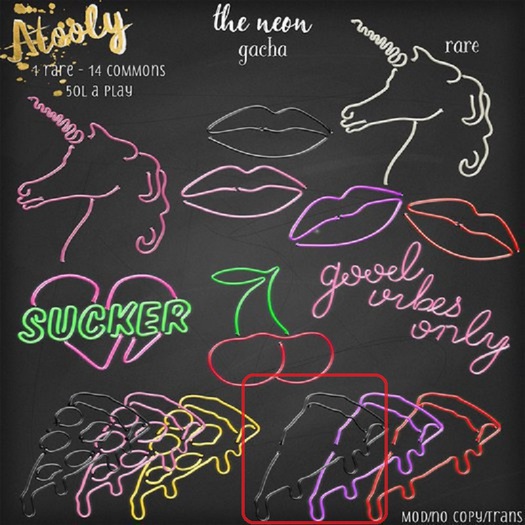 Atooly
the neon
gacha
rare
4 rare - 14 commons
50L a play
SUCKER
good
vibes
only
MOD/NO COPY/TRANS